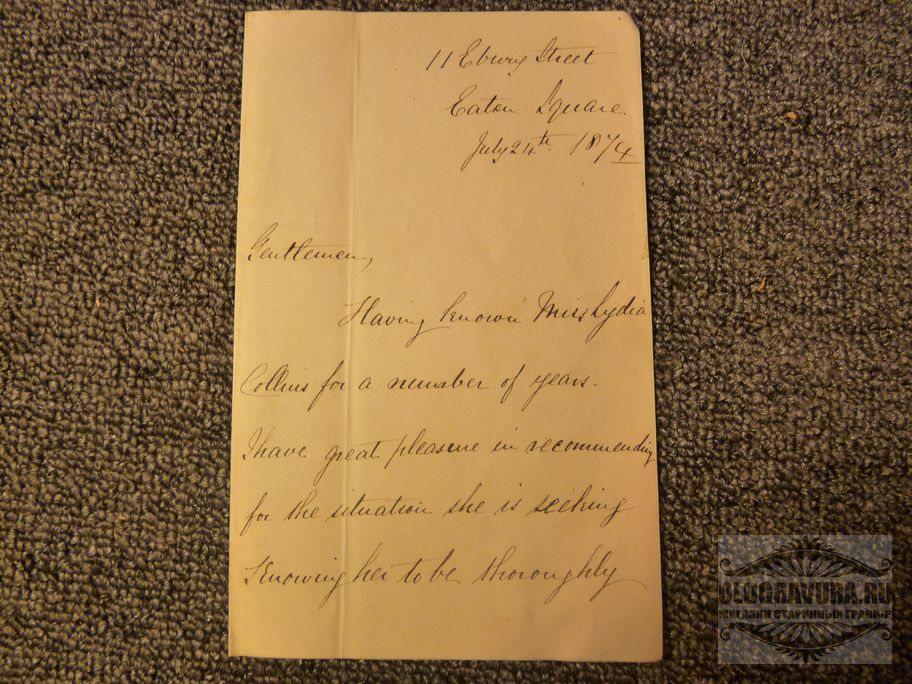 11 Ebury Street
Eaton Square.
July 24th. 1874
Gentlemen,
Having known Miss Lydia
Collins for a number of years.
I have great pleasure in recommending
for the situation she is seeking
Knowing her to be thoroughly
OLDGRAVURA.RU
МАГАЗИН СТАРИННЫХ ГРАВЮР